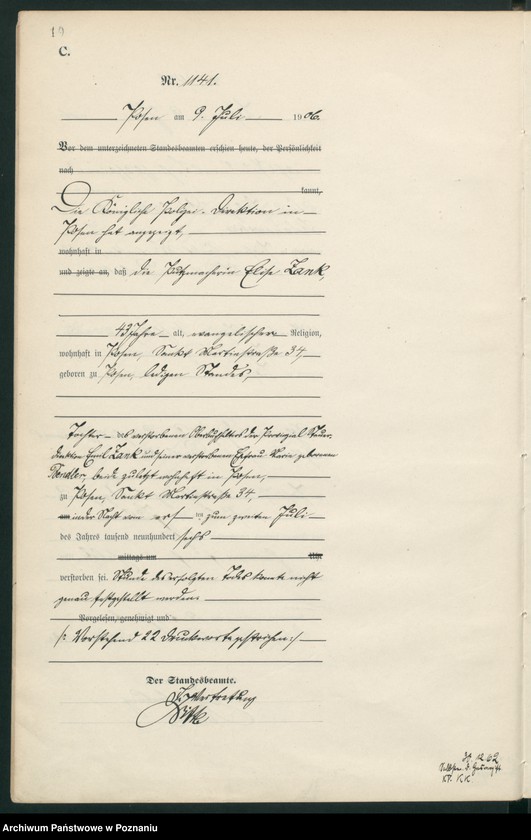 19
C.
Nr. 1141.
Posen am 9. Juli 1906.
Vor dem unterzeichneten Standesbeamten erschien heute, der Persönlichkeit
nach
kannt,
Die Königliche Polizei-Direktion in
Posen hat angezeigt,
wohnhaft in
und zeigte an, daß die Putzmacherin Elise Zank,
43 Jahre alt, evangelischer Religion,
wohnhaft in Posen, Sankt Martinstraße 34,
geboren zu Posen, ledigen Standes,
Tochter des verstorbenen Oberbuchhalters der Provinzial Steuer-
direktion Emil Zank und seiner verstorbenen Ehefrau Marie geborenen
Sendler, beide zuletzt wohnhaft in Posen,
zu Posen, Sankt Martinstraße 34,
in der Nacht vom ersten zum zweiten Juli
des Jahres tausend neunhundert sechs
mittags um Uhr
verstorben sei. Stunde des erfolgten Todes konnte nicht
genau festgestellt werden.
Vorgelesen, genehmigt und
/: Vorstehend 22 Druckworte gestrichen :/
Der Standesbeamte.
In Vertretung
Archiwum Państwowe w Poznaniu